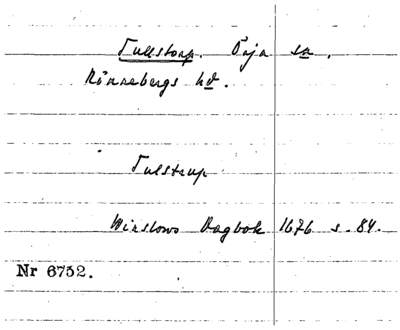 Tullstorp. Örja sn.
Rönnebergs hd.
Tulstrup
Winslows Dagbok 1676 s. 84.
Nr 6752.